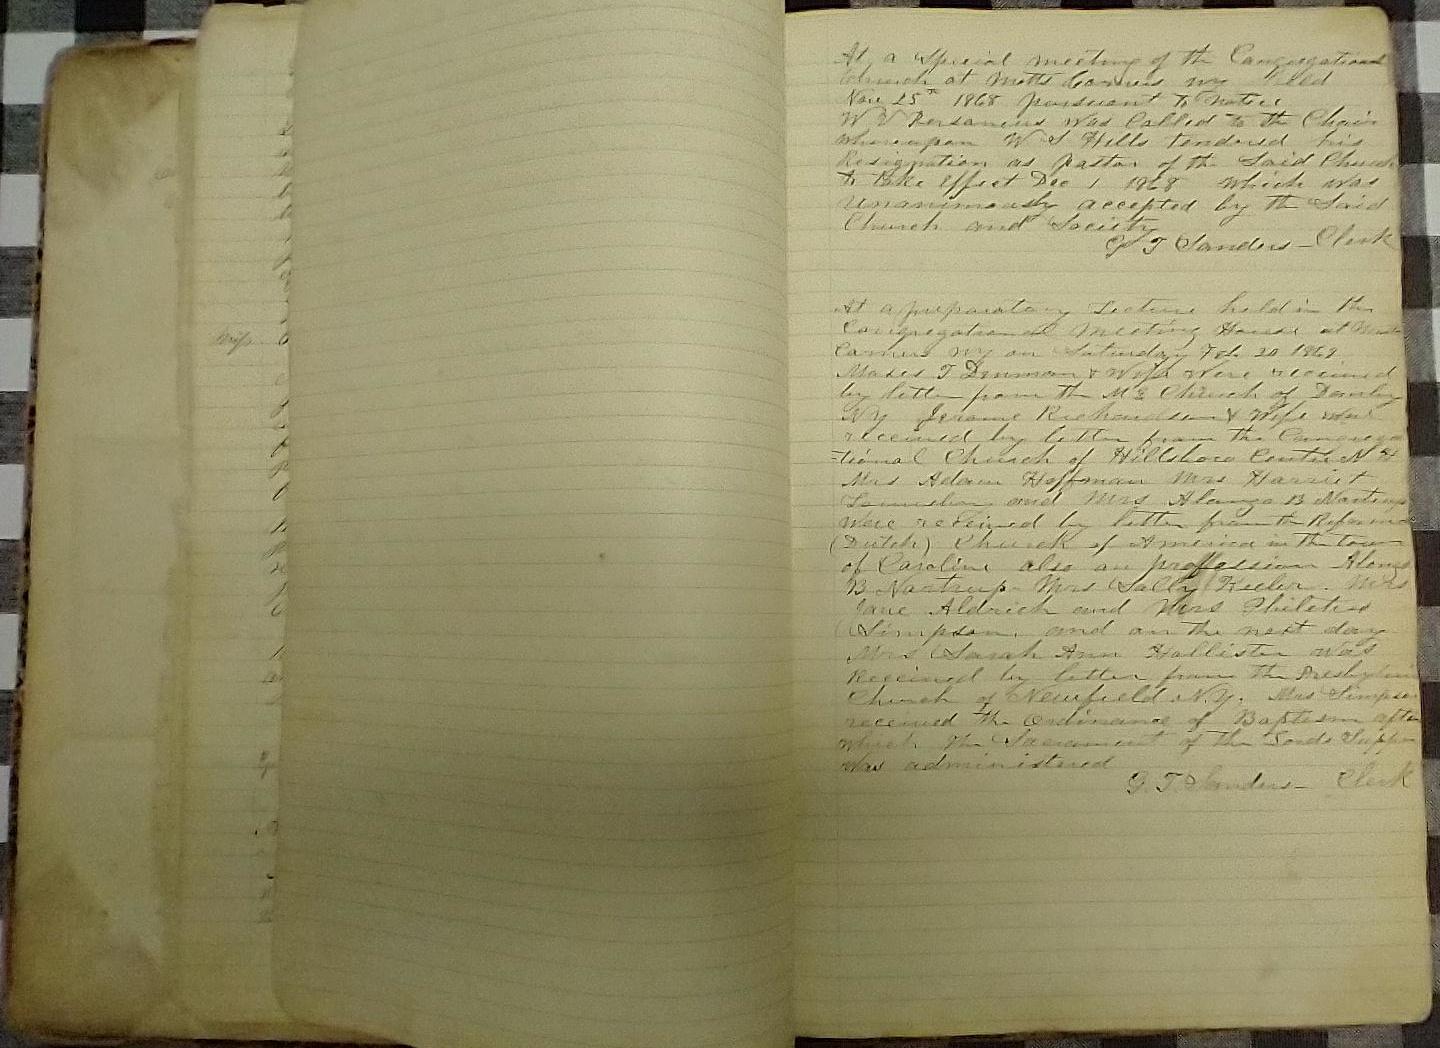 At a Special meeting of the Congregational
Church at Motts Corners NY Held
Nov 25th 1868 pursuant to Notice
W V Personius was Called to the Chair
whereupon W S Hills tendered his
Resignation as pastor of the Said Church
to take Effect Dec 1 1868 which was
Unanimously accepted by the Said
Church and Society
G T Sanders - Clerk
At a preparatory Lecture held in the
Congregational Meeting House at Motts
Corners NY on Saturday Feb 20 1869
Moses T Denman & Wife Were received
by letter from the M E Church of Danby
NY Jerome Richardson & Wife were
received by letter from the Congrega
=tional Church of Hillsboro Center N H
Mrs Adam Hoffman Mrs Harriet
and Mrs Alonzo B Nortrup
Were received by letter from the Reformed
(Dutch) Church of America in the town
of Caroline also on proffession Alonzo
B Nortrup - Mrs Sally Keeler. Mrs
Jane Aldrich and Mrs Philetus
Simpson. and on the next day
Mrs Sarah Ann Hollister was
Received by letter from the Presbyterian
Church of Newfield N.Y. Mrs Simpson
received the Ordinance of Baptism after
which the Sacrament of the Lords Supper
was administered
G. T. Sanders - Clerk